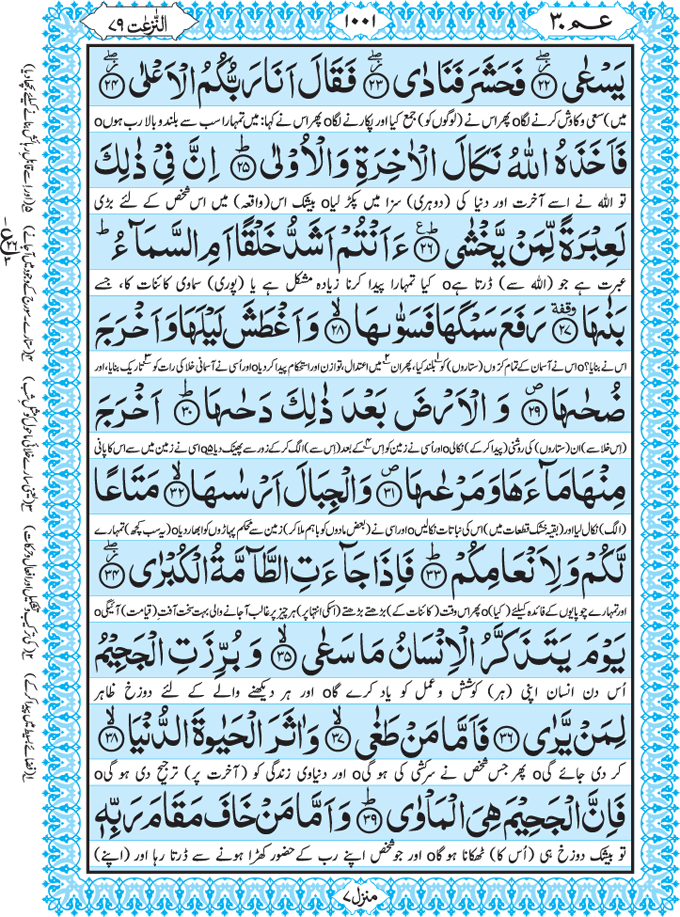 عـمّ ٣٠
١٠٠١
النّٰزعٰت ٧٩
يَسْعٰى ﴿٢٢﴾ فَحَشَرَ فَنَادٰى ﴿٢٣﴾ فَقَالَ اَنَا رَبُّكُمُ الْاَعْلٰى ﴿٢٤﴾
میں) سعی و کاوش کرنے لگاo پھر اس نے (لوگوں کو) جمع کیا اور پکارنے لگاo پھر اس نے کہا: میں تمہارا سب سے بلند و بالا رب ہوںo
فَاَخَذَهُ اللّٰهُ نَكَالَ الْاٰخِرَةِ وَالْاُوْلٰى ﴿٢٥﴾ اِنَّ فِيْ ذٰلِكَ
تو اللہ نے اسے آخرت اور دنیا کی (دوہری) سزا میں پکڑ لیاo بیشک اس (واقعہ) میں اس شخص کے لئے بڑی
لَعِبْرَةً لِّمَنْ يَّخْشٰى ﴿٢٦﴾ ءَاَنْتُمْ اَشَدُّ خَلْقًا اَمِ السَّمَآءُ ؕ
عبرت ہے جو (اللہ سے) ڈرتا ہےo کیا تمہارا پیدا کرنا زیادہ مشکل ہے یا (پوری) سماوی کائنات کا، جسے
بَنٰىهَا ﴿٢٧﴾ رَفَعَ سَمْكَهَا فَسَوّٰىهَا ﴿٢٨﴾ وَاَغْطَشَ لَيْلَهَا وَاَخْرَجَ
اس نے بنایا؟o اس نے آسمان کے تمام کرّوں (ستاروں) کو بلند کیا، پھر ان میں اعتدال، توازن اور استحکام پیدا کر دیاo اور اُسی نے آسمانی خلا کی رات کو تاریک بنایا، اور
ضُحٰىهَا ﴿٢٩﴾ وَالْاَرْضَ بَعْدَ ذٰلِكَ دَحٰىهَا ﴿٣٠﴾ اَخْرَجَ
(اِس خلا سے) ان (ستاروں) کی روشنی (پیدا کر کے) نکالیo اور اُسی نے زمین کو اِس کے بعد (اِس سے) الگ کر کے زور سے پھینک دیاo اسی نے زمین میں سے اس کا پانی
مِنْهَا مَآءَهَا وَمَرْعٰىهَا ﴿٣١﴾ وَالْجِبَالَ اَرْسٰىهَا ﴿٣٢﴾ مَتَاعًا
(الگ) نکال لیا اور (بقیہ خشک قطعات میں) اس کی نباتات نکالیںo اور اسی نے (بعض مادوں کو باہم ملا کر) زمین سے محکم پہاڑوں کو ابھار دیاo (یہ سب کچھ) تمہارے
لَّكُمْ وَلِاَنْعَامِكُمْ ﴿٣٣﴾ فَاِذَا جَآءَتِ الطَّآمَّةُ الْكُبْرٰى ﴿٣٤﴾
اور تمہارے چوپایوں کے فائدہ کیلئے (کیا)o پھر اس وقت (کائنات کے) بڑھتے بڑھتے (اسکی انتہا پر) ہر چیز پر غالب آجانے والی بہت سخت آفتِ (قیامت) آئیگیo
يَوْمَ يَتَذَكَّرُ الْاِنْسَانُ مَا سَعٰى ﴿٣٥﴾ وَبُرِّزَتِ الْجَحِيْمُ
اُس دن انسان اپنی (ہر) کوشش و عمل کو یاد کرے گاo اور ہر دیکھنے والے کے لئے دوزخ ظاہر
لِمَنْ يَّرٰى ﴿٣٦﴾ فَاَمَّا مَنْ طَغٰى ﴿٣٧﴾ وَاٰثَرَ الْحَيٰوةَ الدُّنْيَا ﴿٣٨﴾
کر دی جائے گیo پھر جس شخص نے سرکشی کی ہو گیo اور دنیاوی زندگی کو (آخرت پر) ترجیح دی ہو گیo
فَاِنَّ الْجَحِيْمَ هِيَ الْمَاْوٰى ﴿٣٩﴾ وَاَمَّا مَنْ خَافَ مَقَامَ رَبِّهٖ
تو بیشک دوزخ ہی (اُس کا) ٹھکانا ہو گاo اور جو شخص اپنے رب کے حضور کھڑا ہونے سے ڈرتا رہا اور (اپنے)
منزل ٧